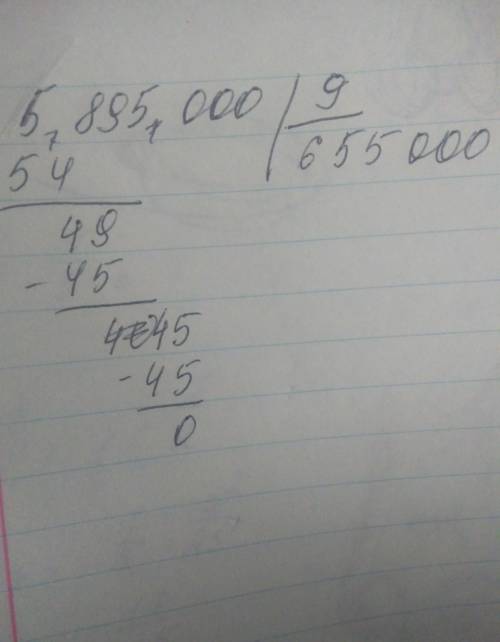 5,895,000 9
54 655000
49
- 45
45
- 45
0